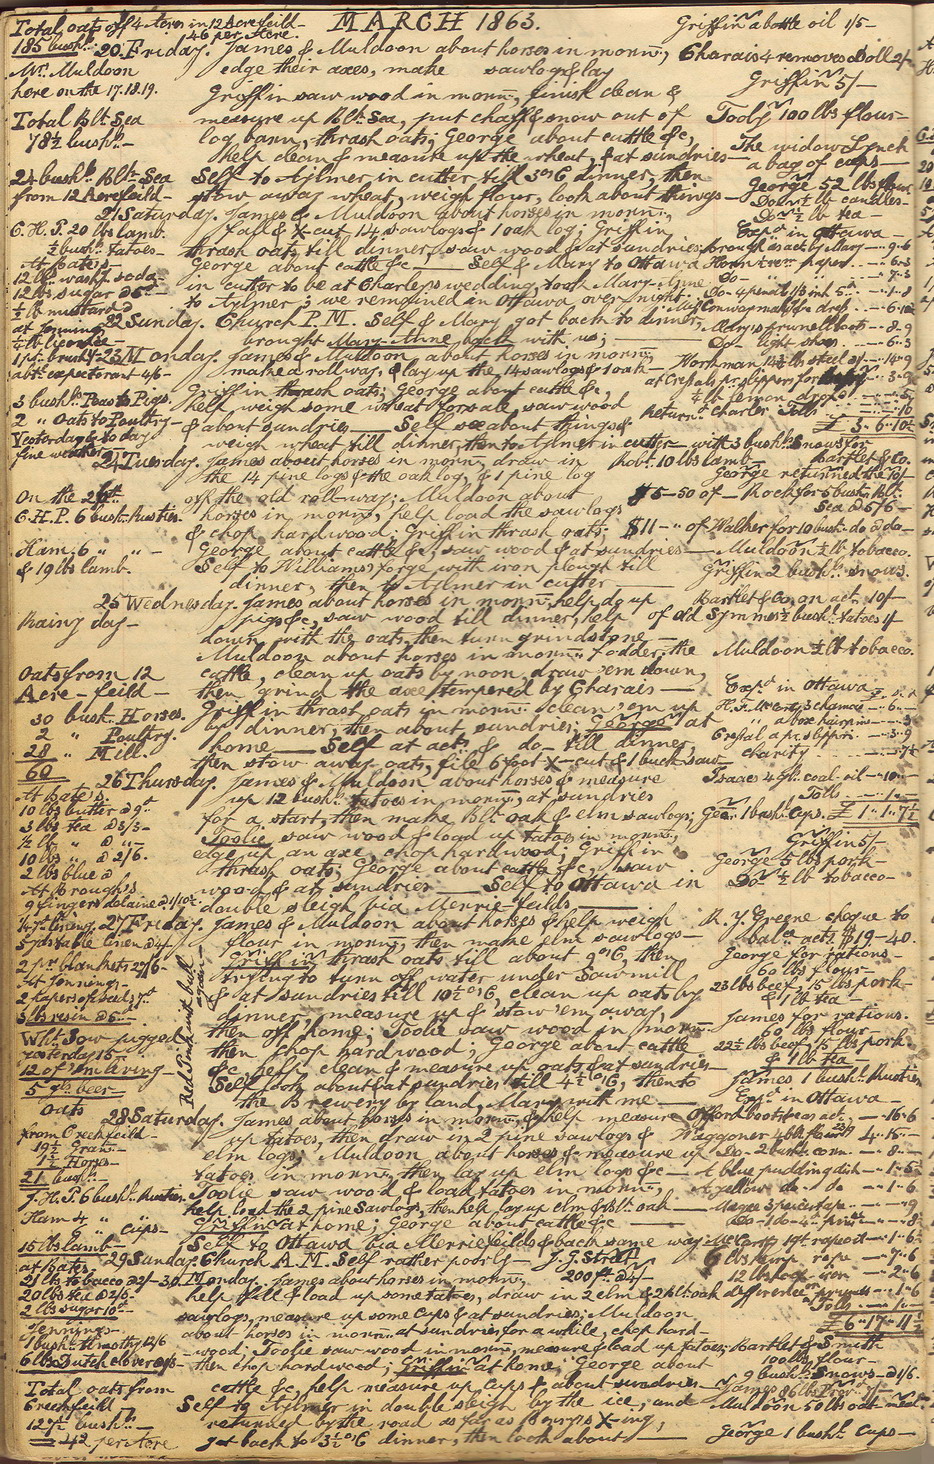 MARCH 1863.
Total oats off 4 Acres in 12 Acre feild -
46 per Acre.
185 bush.
Griffin a bottle oil 1/5 -
20 Friday. James & Muldoon about horses in morn., Charais 4 removes Doll 2/-
Mr. Muldoon
here on the 17.18.19.
edge their axes, make sawlogs & lay
Griffin 5/-
Griffin saw wood in morn., finish clean &
Total Blt. Sea
78½ bush. -
measure up Blt. Sea, put chaff & snow out of
Tooly 100 lbs flour -
log barn, thrash oats; George about cattle &c,
The widow Lynch
help clean & measure up the wheat, & at sundries -
a bag of cups -
24 bush. Blt. Sea
from 12 Acre feild -
Self to Aylmer in cutter till 3 o'C dinner, then
George 52 lbs flour
stow away wheat, weigh flour, look about things -
Do ½ lb candles -
21 Saturday. James & Muldoon about horses in morn.,
Do ½ lb tea -
C. H. P. 20 lbs lamb.
½ bush. tatoes -
fall & X-cut 14 sawlogs & 1 oak log; Griffin
Exp.d in Ottawa -
thrash oats, till dinner, saw wood & at sundries;
Brough as act. by Mary - 9-6
At Bate's -
12 lbs wash.g soda
12 lbs sugar
½ lb mustard
George about cattle &c - Self & Mary to Ottawa
in cutter to be at Charley's wedding, took Mary-Anne
to Aylmer; we remained in Ottawa over night.
at Jennings
22 Sunday. Church P.M. Self & Mary got back to dinner,
Mary's prunell boots - 8-9
brought Mary-Anne back with us;
Do light shoes - 6-3
¼ lb licorice -
1 pr. brushes
23 Monday. James & Muldoon about horses in morn.,
Workman 14½ lbs steel - 14-9
abt. expectorant 4/6 -
make a rollway, & lay up the 14 sawlogs & 1 oak -
Griffin thrash oats; George about cattle &c,
¼ lb lemon drops
3 bush. Peas to Pigs.
2 " Oats to Poultry -
help weigh some wheat for sale, saw wood
& about sundries - Self see about things &
return.d Charley Tolls
£ 3-6-10½
Yesterday & to day
fine weather
weigh wheat till dinner, then to Aylmer in cutter - with 3 bush. Snows for
Bartlet & Co.
24 Tuesday. James about horses in morn., draw in
Robt. 10 lbs lamb
George returned the 10/-
the 14 pine logs & the oak log, & 1 pine log
On the 21st
C. H. P. 6 bush. Rusties
off the old roll-way; Muldoon about
$5-50 of - Rock for 5 bush. Blt.
Sea @ 5/6 -
horses in morn., help load the sawlogs
& chop hardwood; Griffin thrash oats;
$11 - " of Walker for 10 bush. do @ do -
Ham; 6 " " -
& 19 lbs lamb.
George about cattle &c, saw wood & at sundries -
Muldoon ½ lb tobacco.
Self to Williams' forge with iron plough till
Griffin 2 bush. snows.
dinner, then to Aylmer in cutter -
25 Wednesday. James about horses in morn., help do up
Bartlet & Co. on act. 10/-
Rainy day -
pigs &c, saw wood till dinner, help
of Old Symmes ½ bush. tatoes 1/
down with the oats, then turn grindstone -
Muldoon about horses in morn., fodder the
Muldoon ½ lb tobacco.
Oats from 12
Acre - feild -
cattle, clean up oats by noon, draw 'em down,
then grind the axe tempered by Charaes -
Exp.d in Ottawa
30 bush. Horses.
2 " Poultry.
28 " Mill.
60
Griffin thrash oats in morn., clean 'em up
by dinner, then about sundries; George at
home - Self at act. & do - till dinner,
charity
then stow away oats, file 6 foot X-cut & 1 buck saw -
26 Thursday. James & Muldoon about horses & measure
Isaac 4 gls. coal oil - 10 -
At Bate's
10 lbs butter @ 9d
3 lbs tea @ 3/3 -
½ lb " @ " -
10 lbs " @ 2/6.
2 lbs blue @
up 12 bush. tatoes in morn., at sundries
Tolls
for a start, then make Blt. oak & elm sawlogs;
Geo. 1 bush. cups. £ 1-1-7½
Toolie saw wood & load up tatoes in morn.,
Griffin 5/-
edge up an axe, chop hardwood; Griffin
George 5 lbs pork -
thrash oats; George about cattle &c, saw
Do ½ lb tobacco -
wood & at sundries - Self to Ottawa in
double sleigh via Merrie-feilds,
At Brough's
9 fingers delaine
5 yds table linen @ 4/-
2 pr. blankets 27/6 -
27 Friday. James & Muldoon about horses & help weigh
R. Y. Greene cheque to
bal.ce acts. $19-40.
flour in morn., then make elm sawlogs -
George for rations -
60 lbs flour -
Griffin thrash oats till about 9 o'C, then
trying to turn off water under Sawmill
23 lbs beef, 15 lbs pork -
& 1 lb tea -
At Jennings -
3 lbs resin
& at sundries till 10½ o'C, clean up oats by
dinner, measure up & stow 'em away,
James for rations.
60 lbs flour -
Wht. Sow pigged
yesterday 15 -
12 of 'em living
then off home; Toolie saw wood in morn.,
then chop hardwood; George about cattle
22½ lbs beef, 15 lbs pork -
& 1 lb tea
5 gls beer
&c, help clean & measure up oats & at sundries
James 1 bush. Rusties
Red Pink int. bull
again
Self look about & at sundries till 4½ o'C, then to
Exp.d in Ottawa -
oats
the Brewery by land, Mary with me -
28 Saturday. James about horses in morn. & help measure
Offord boots bear act. - 16-6
from Creekfeild -
19½ Gran. -
1½ Horses -
21 bush.
up tatoes, then draw in 2 pine sawlogs &
elm logs; Muldoon about horses & measure up
Do - 2 bush. corn. - 8 -
tatoes in morn., then lay up elm logs &c -
A blue pudding dish - 1-5½
J. H. P. 6 bush. Rusties.
Toolie saw wood & load tatoes in morn.,
A yellow do - do - 1-6
Ham 4 " cups -
help load the 2 pine Sawlogs, then help lay up elm & Blt. oak -
Griffin at home; George about cattle &c -
15 lbs lamb -
Self to Ottawa via Merriefeilds & back same way
29 Sunday. Church A.M. Self rather poorly - J. J. Stratt
6 lbs hemp rope - 7-6
at Bates -
21 lbs tobacco @ 2/-
20 lbs tea @ 2/6 -
2 lbs sugar 10d -
30 Monday. James about horses in morn.,
200 ft. @ 4/-
12 lbs hoop iron - 2-6
help fill & load up some tatoes, draw in 2 elm & 2 Blt. oak
sawlogs, measure up some Cups & at sundries; Muldoon
£ 6-17-11½
Jennings -
1 bush. timothy 12/6
6 lbs Dutch clover
about horses in morn., at sundries for a while, chop hard -
wood; Toolie saw wood in morn., measure & load up tatoes;
Bartlet & Smith
100 lbs flour -
then chop hardwood; Griffin at home; George about
9 bush. Snows - @ 1/6.
Total oats from
Creekfeild -
127½ bush. -
= 42 per Acre
cattle &c, help measure up Cups & about sundries -
James 86 lbs Prov.r 3/-
Self to Aylmer in double sleigh by the ice, and
Muldoon 50 lbs oat meal.
returned by the road as far as Henry's X-ing,
got back to 3½ o'C dinner, then look about -
George 1 bush. Cups -